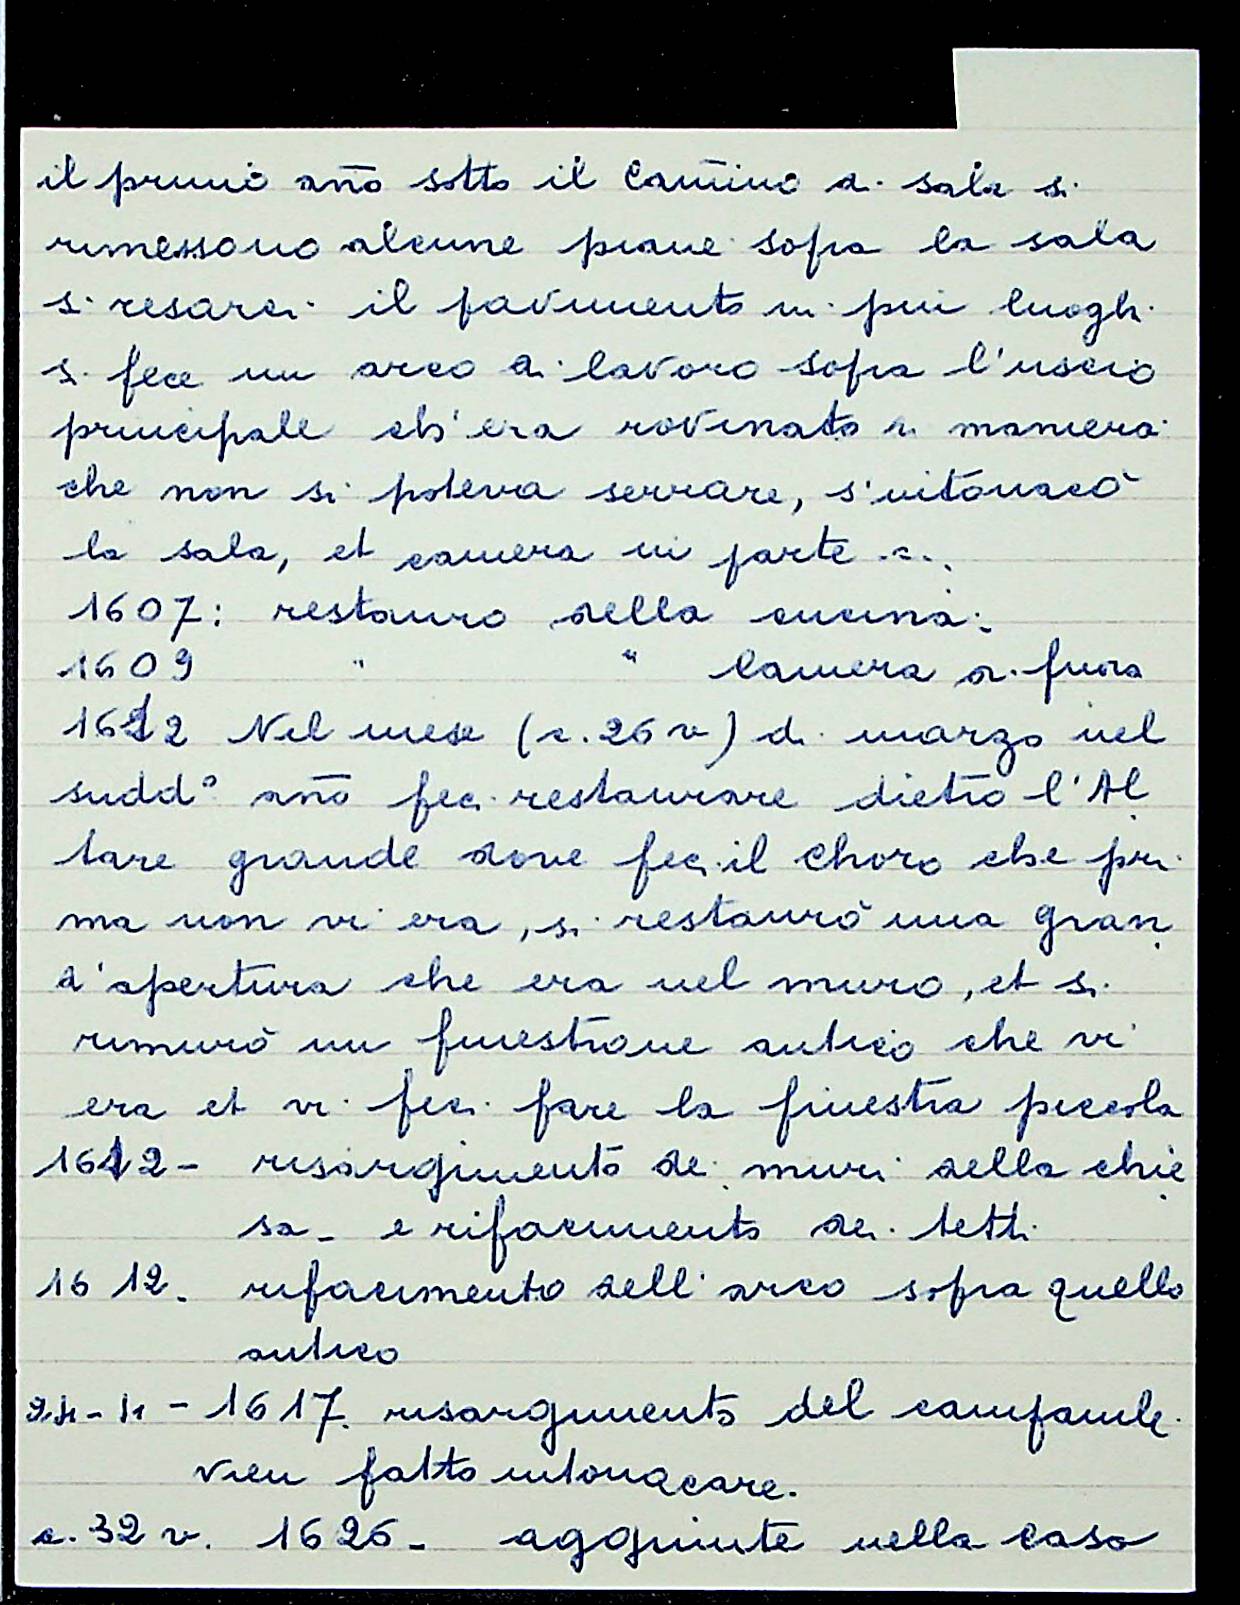 il primo año sotto il Camĩno di sala si
rimessono alcune piane sopra la sala
si resarci il pavimento in più luoghi
si fece un arco di lavoro sopra l'uscio
principale ch'era rovinato in maniera
che non si poteva serrare, s'intonacò
la sala, et camera in parte
1607: restauro della cucina
1609 " " Camera di fuora
1612 Nel mese (c. 26 v) di marzo nel
sudd° año feci restaurare dietro l'Al
tare grande dove feci il choro che pri
ma non vi era, si restaurò una gran
d'apertura che era nel muro, et si
rimurò un finestrone antico che vi
era et vi feci fare la finestra piccola
1612 - risargimento dei muri della chie
sa - e rifacimento dei tetti
1612. rifacimento dell'arco sopra quello
antico
- 1617. risargimento del campanile
vien fatto intonacare.
c. 32 v. 1626 - aggiunte nella casa